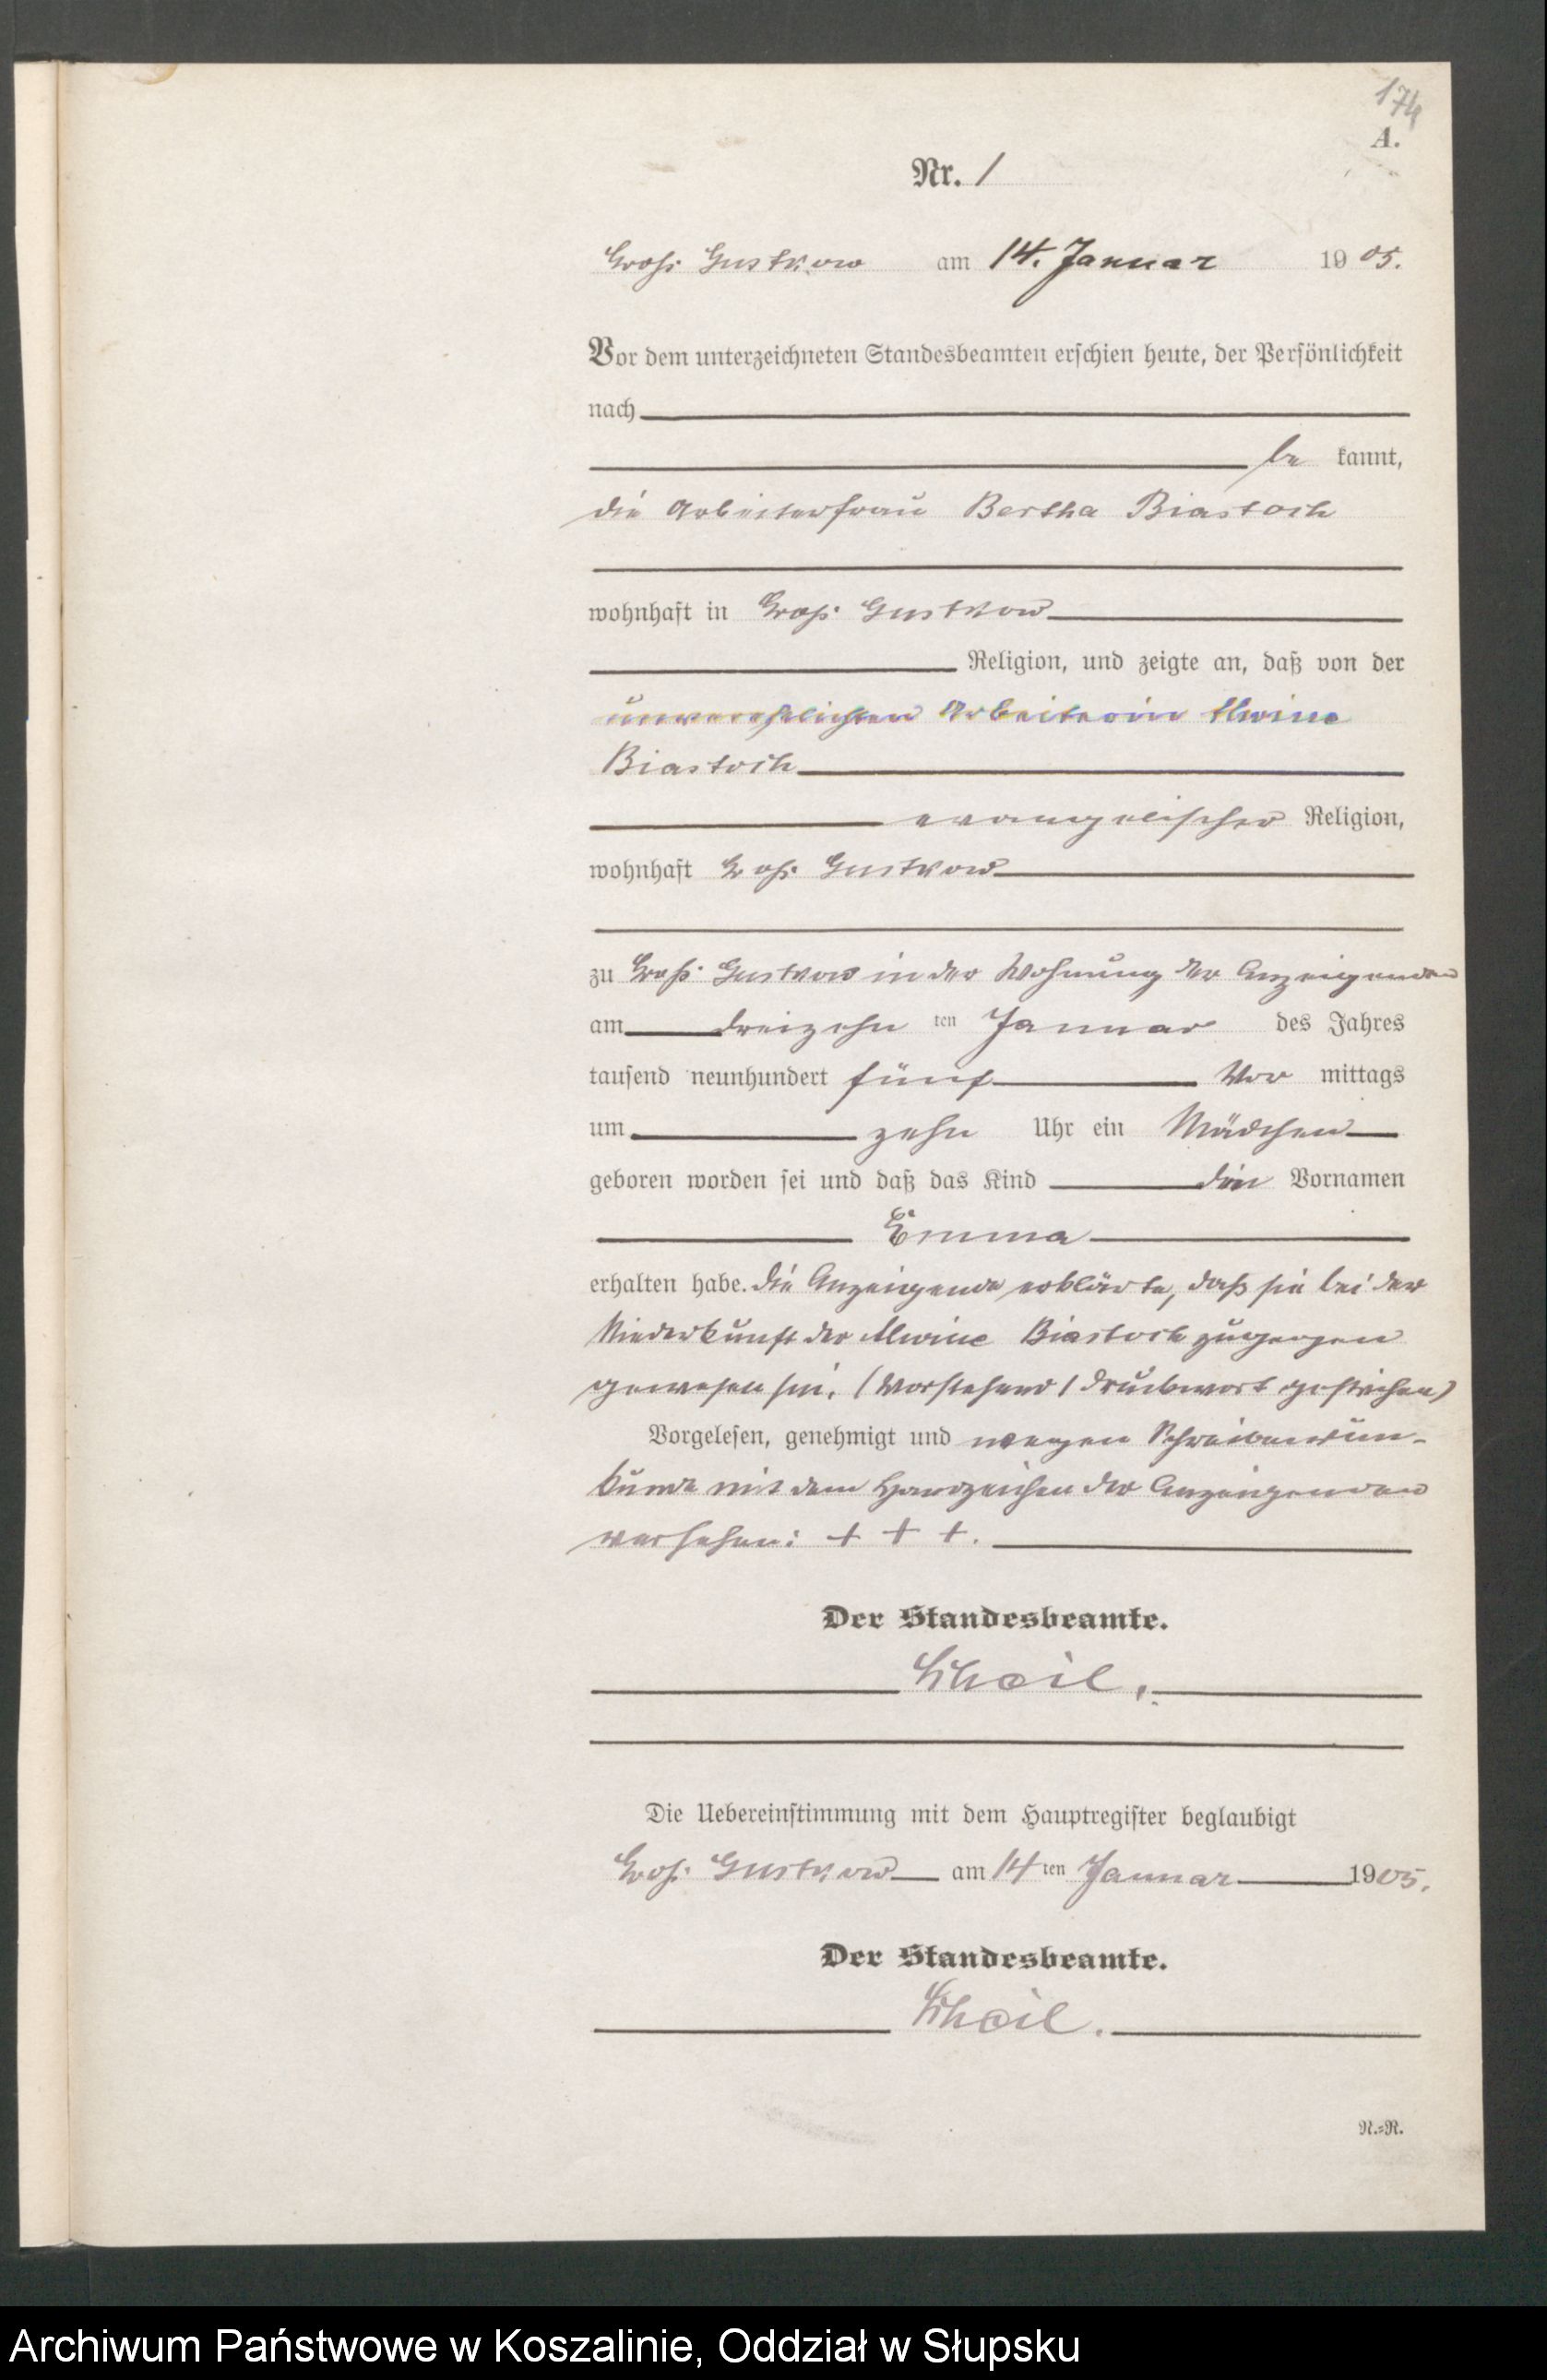 174
A.
Nr. 1
Groß Gustkow am 14. Januar 1905.
Vor dem unterzeichneten Standesbeamten erschien heute, der Persönlichkeit
nach
be kannt,
die Arbeiterfrau Bertha Biastoch
wohnhaft in Groß Gustkow
Religion, und zeigte an, daß von der
unverehelichten Arbeiterin Alwine
Biastoch
evangelischer Religion,
wohnhaft Groß Gustkow
zu Groß Gustkow in der Wohnung der Anzeigenden
am dreizehn ten Januar des Jahres
tausend neunhundert fünf Vor mittags
um zehn Uhr ein Mädchen
geboren worden sei und daß das Kind den Vornamen
Emma
erhalten habe. Die Anzeigende erklärte, daß sie bei der
Niederkunft der Alwine Biastoch zugegen
gewesen sei. (Vorstehend 1 Druckwort gestrichen)
Vorgelesen, genehmigt und wegen Schreibensun-
kunde mit dem Handzeichen der Anzeigenden
versehen: + + +.
Der Standesbeamte.
Die Uebereinstimmung mit dem Hauptregister beglaubigt
Groß Gustkow am 14 ten Januar 1905.
Der Standesbeamte.
N.=R.
Archiwum Państwowe w Koszalinie, Oddział w Słupsku